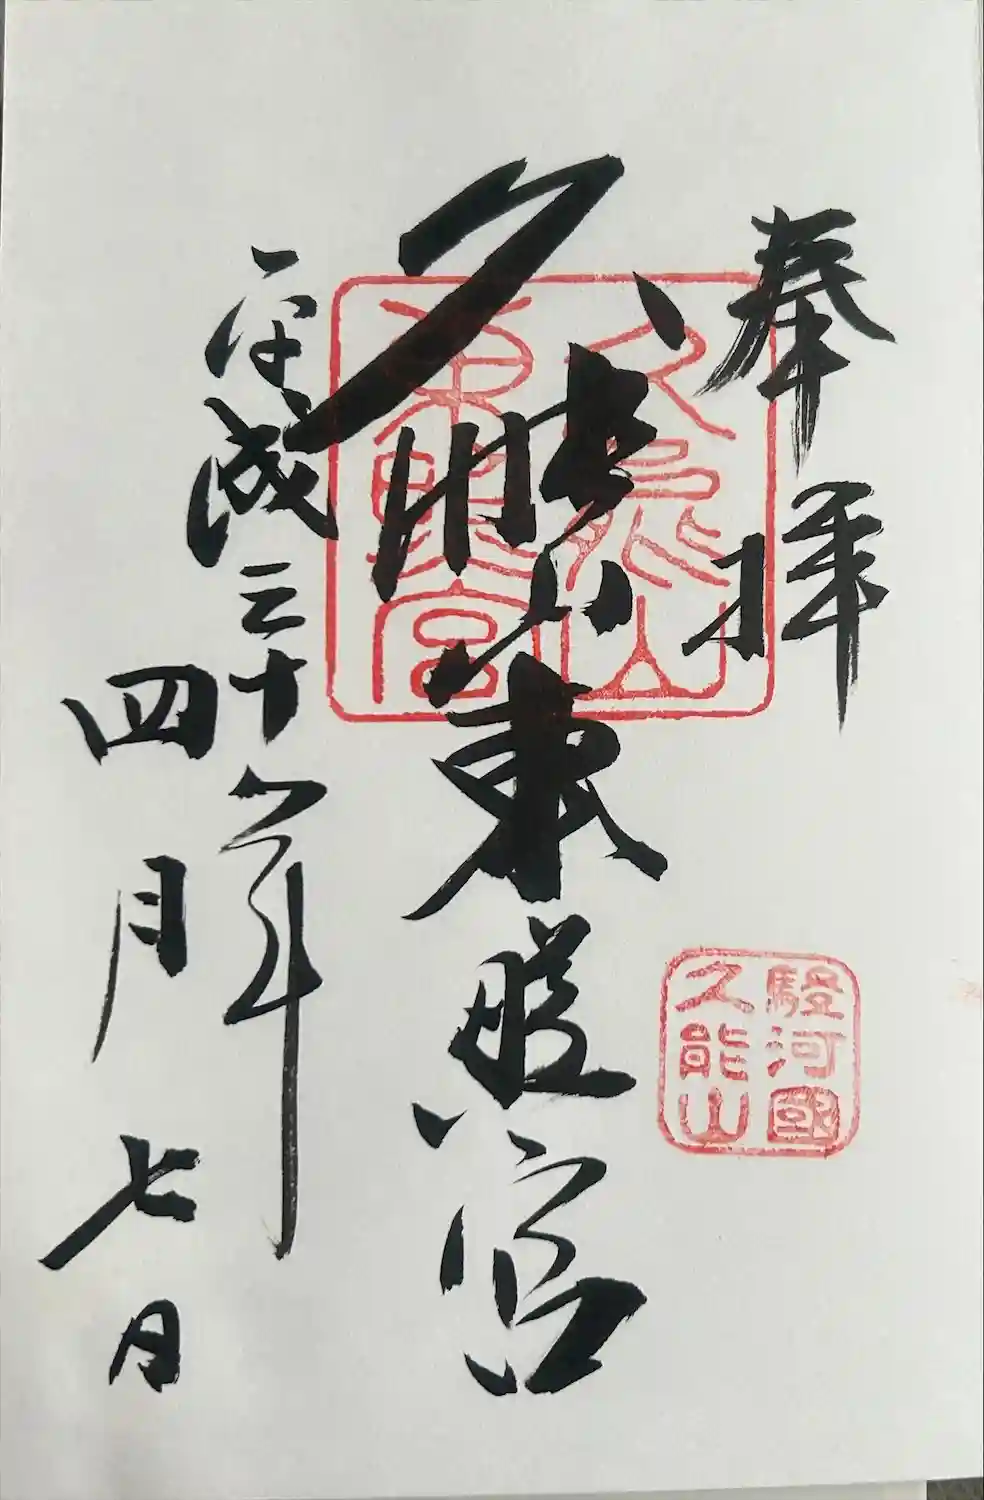 奉拝
久能山東照宮
平成三十年
四月七日
久能山
東照宮
駿河國
久能山